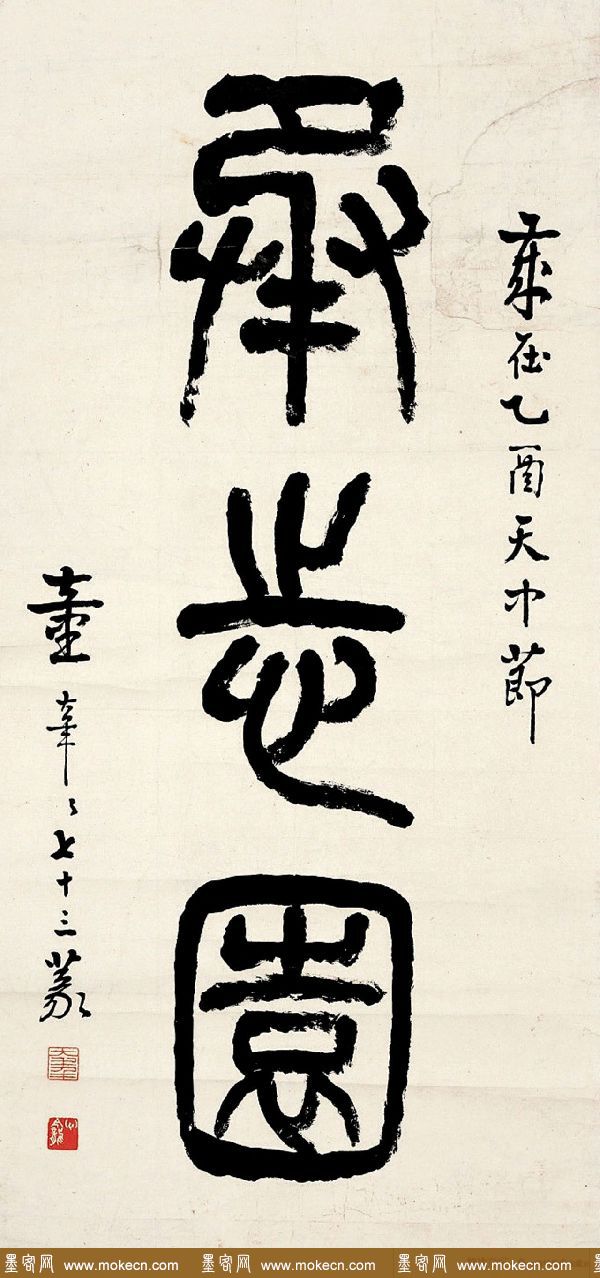 歲在乙酉天中節
承志園
童七十三篆
墨客网 www.mokecn.com 墨客网 www.mokecn.com 墨客网 www.mokecn.com